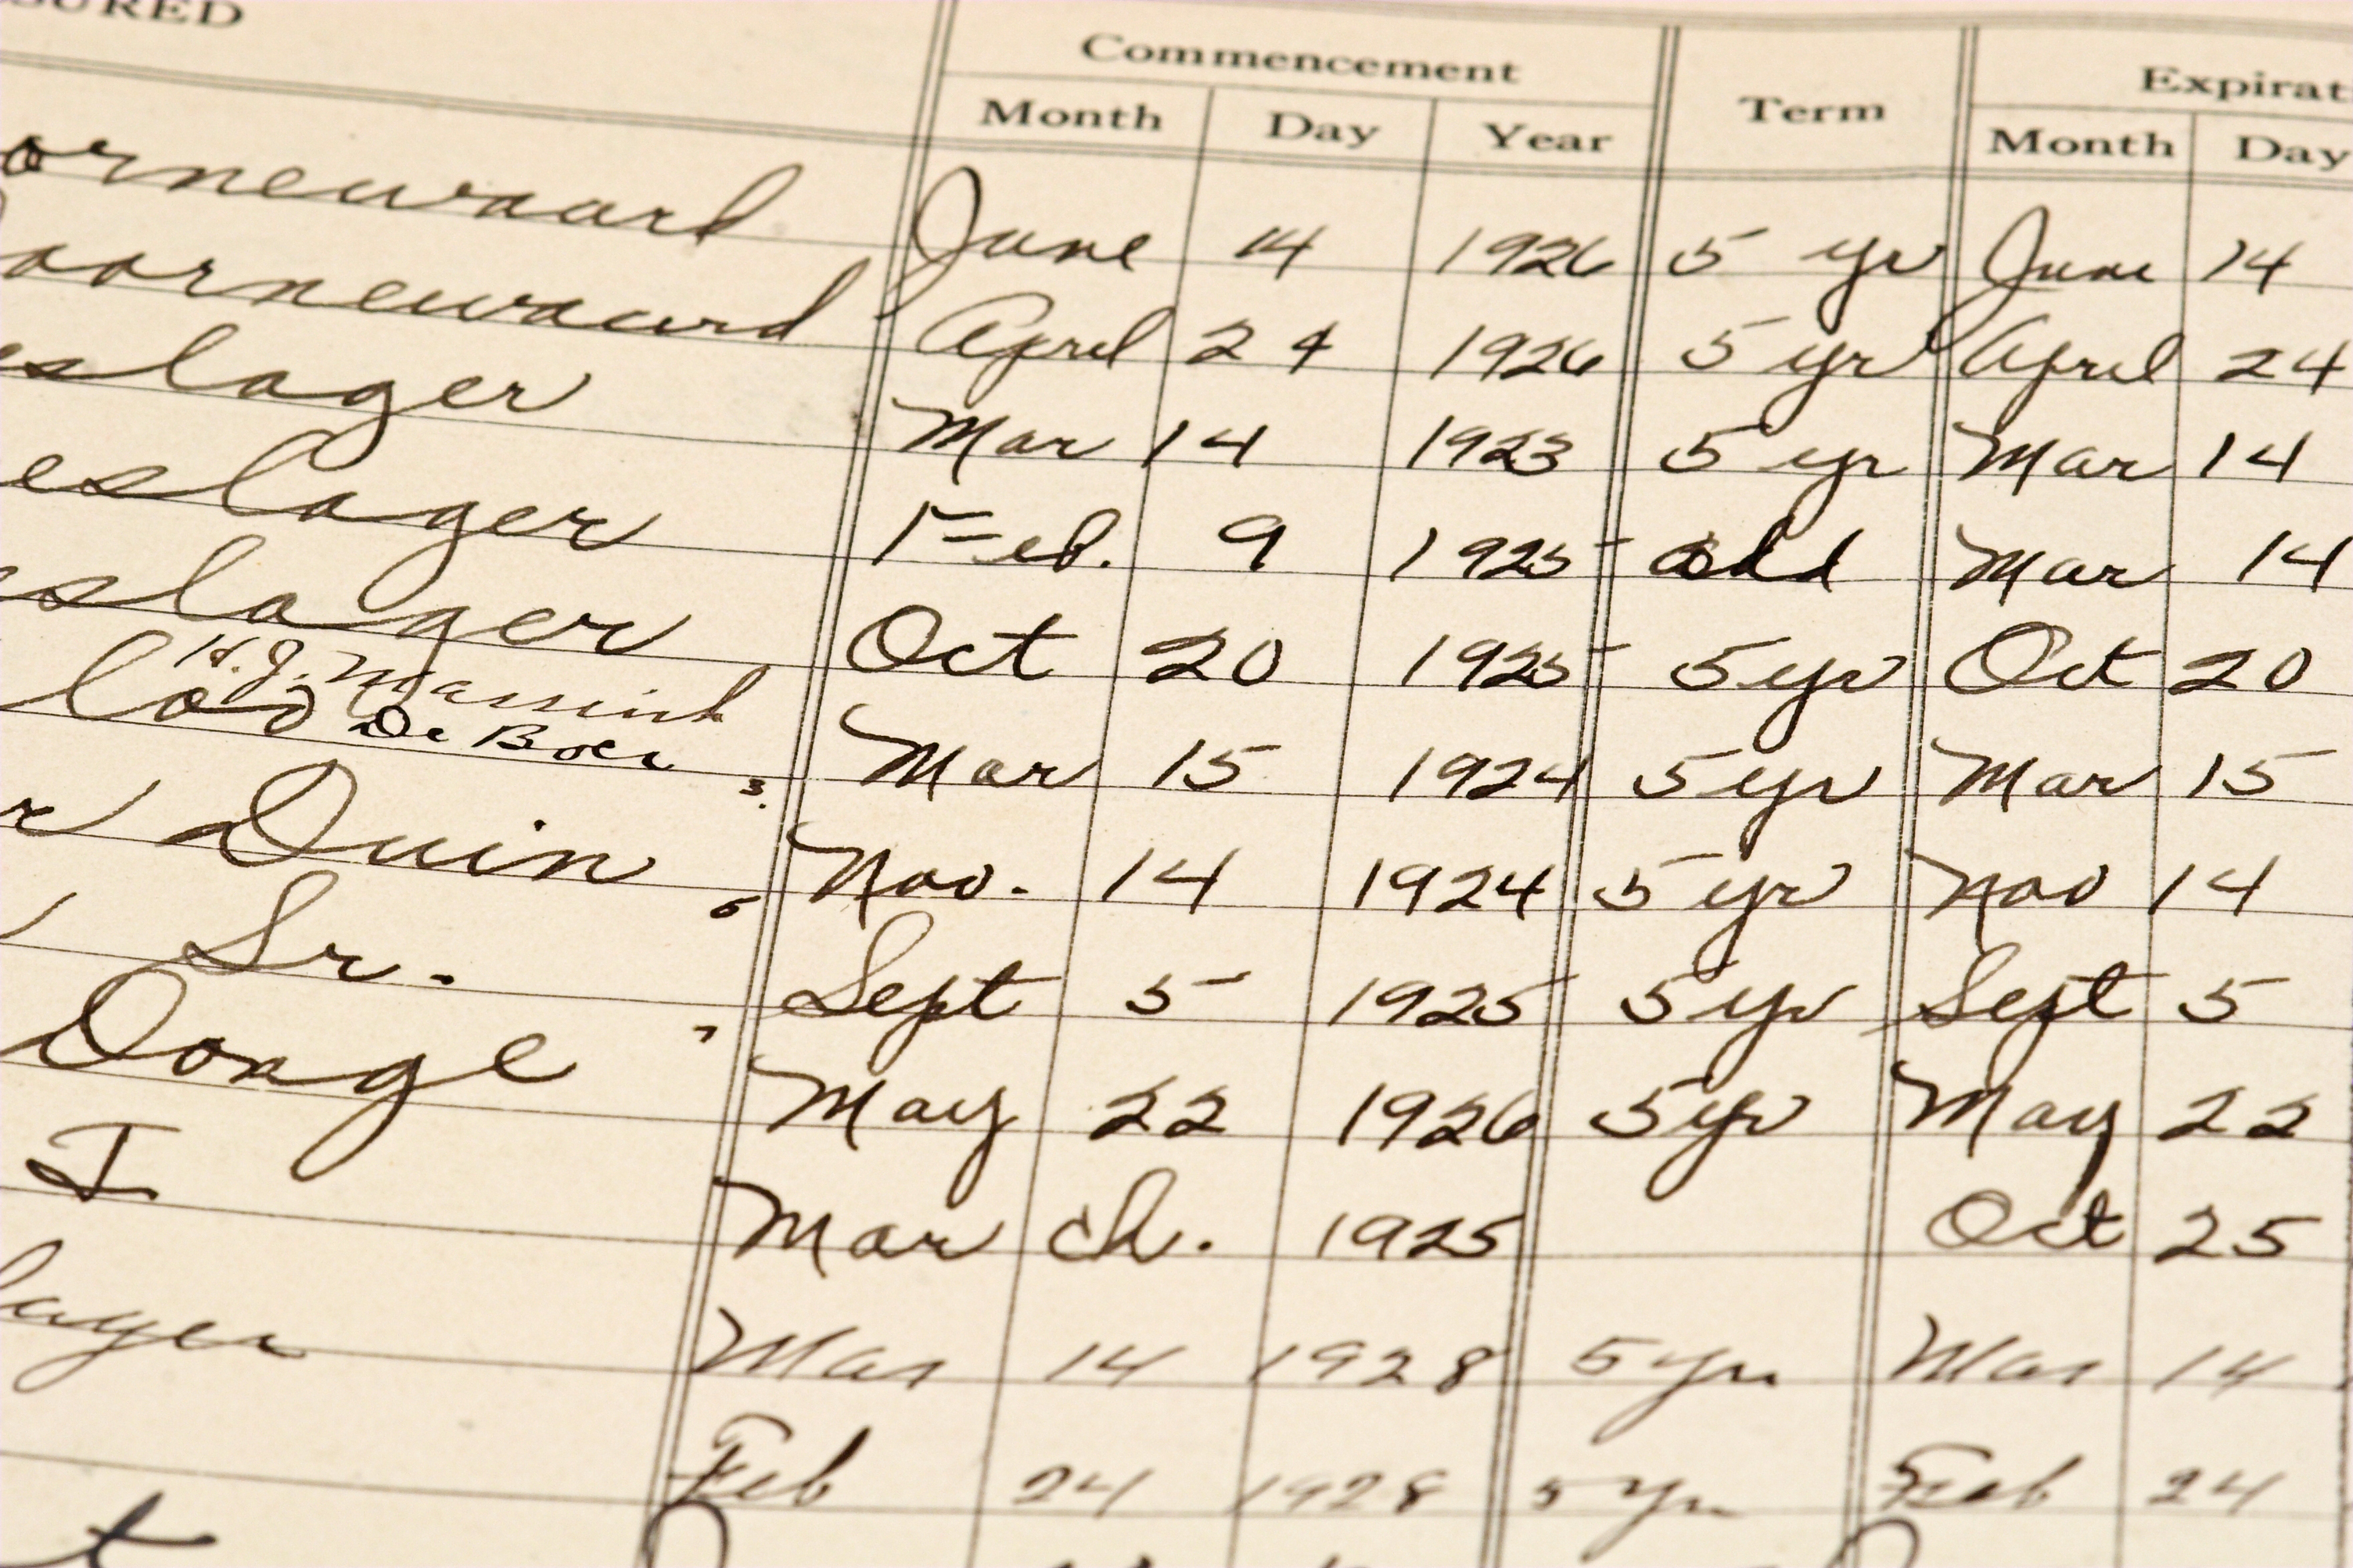 SURED Commencement Term Expirat
Month Day Year Month Day
ornewaard June 14 1926 5 yr June 14
oornewaard April 24 1926 5 yr April 24
eslager Mar 14 1923 5 yr Mar 14
eslager Feb. 9 1925 add Mar 14
slager Oct 20 1925 5 yr Oct 20
H.J.
Loo De Boer 3. Mar 15 1924 5 yr Mar 15
r Duin 6 Nov. 14 1924 5 yr Nov 14
Sr. Sept 5 1925 5 yr Sept 5
Donge 7 May 22 1926 5 yr May 22
I March. 1925 Oct 25
lager Mar 14 1928 5 yr Mar 14
Feb 24 1928 5 yr Feb 24
t